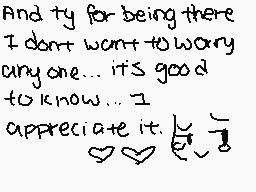 And ty for being there
I dont want to worry
anyone... it's good
to know... I
appreciate it.